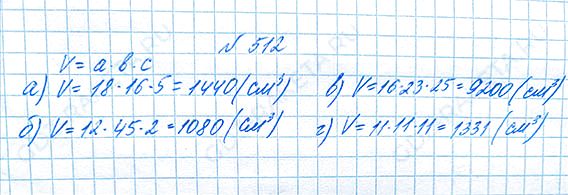 № 512
V = a · b · c
а) V = 18 · 16 · 5 = 1440 (см³)
в) V = 16 · 23 · 25 = 9200 (см³)
б) V = 12 · 45 · 2 = 1080 (см³)
г) V = 11 · 11 · 11 = 1331 (см³)